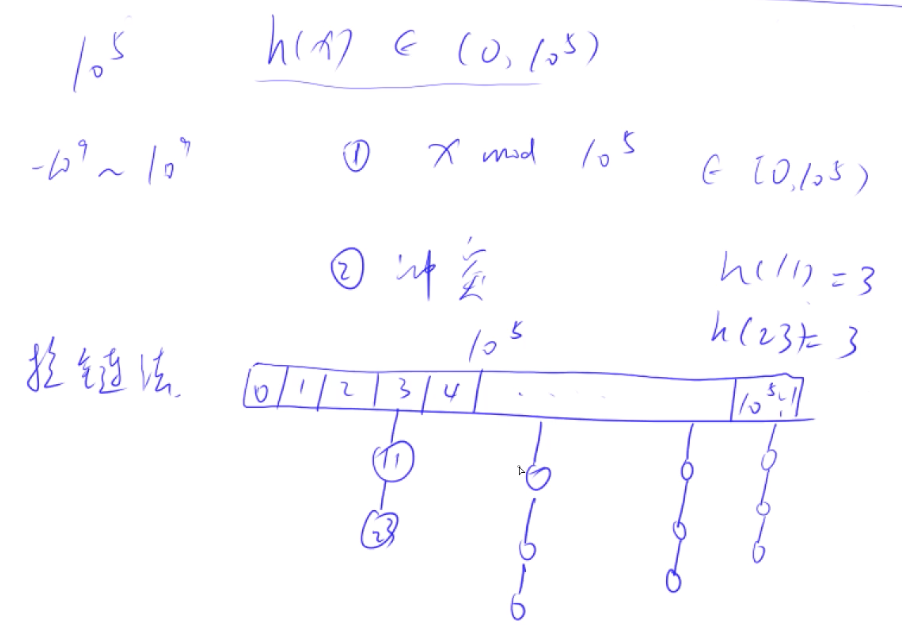 10^5 h(x) ∈ (0, 10^5)
-10^9 ~ 10^9 ① x mod 10^5 ∈ [0, 10^5)
② 冲突 h(11) = 3
h(23) = 3
拉链法 10^5
0 1 2 3 4 ..... 10^5-1
11
23